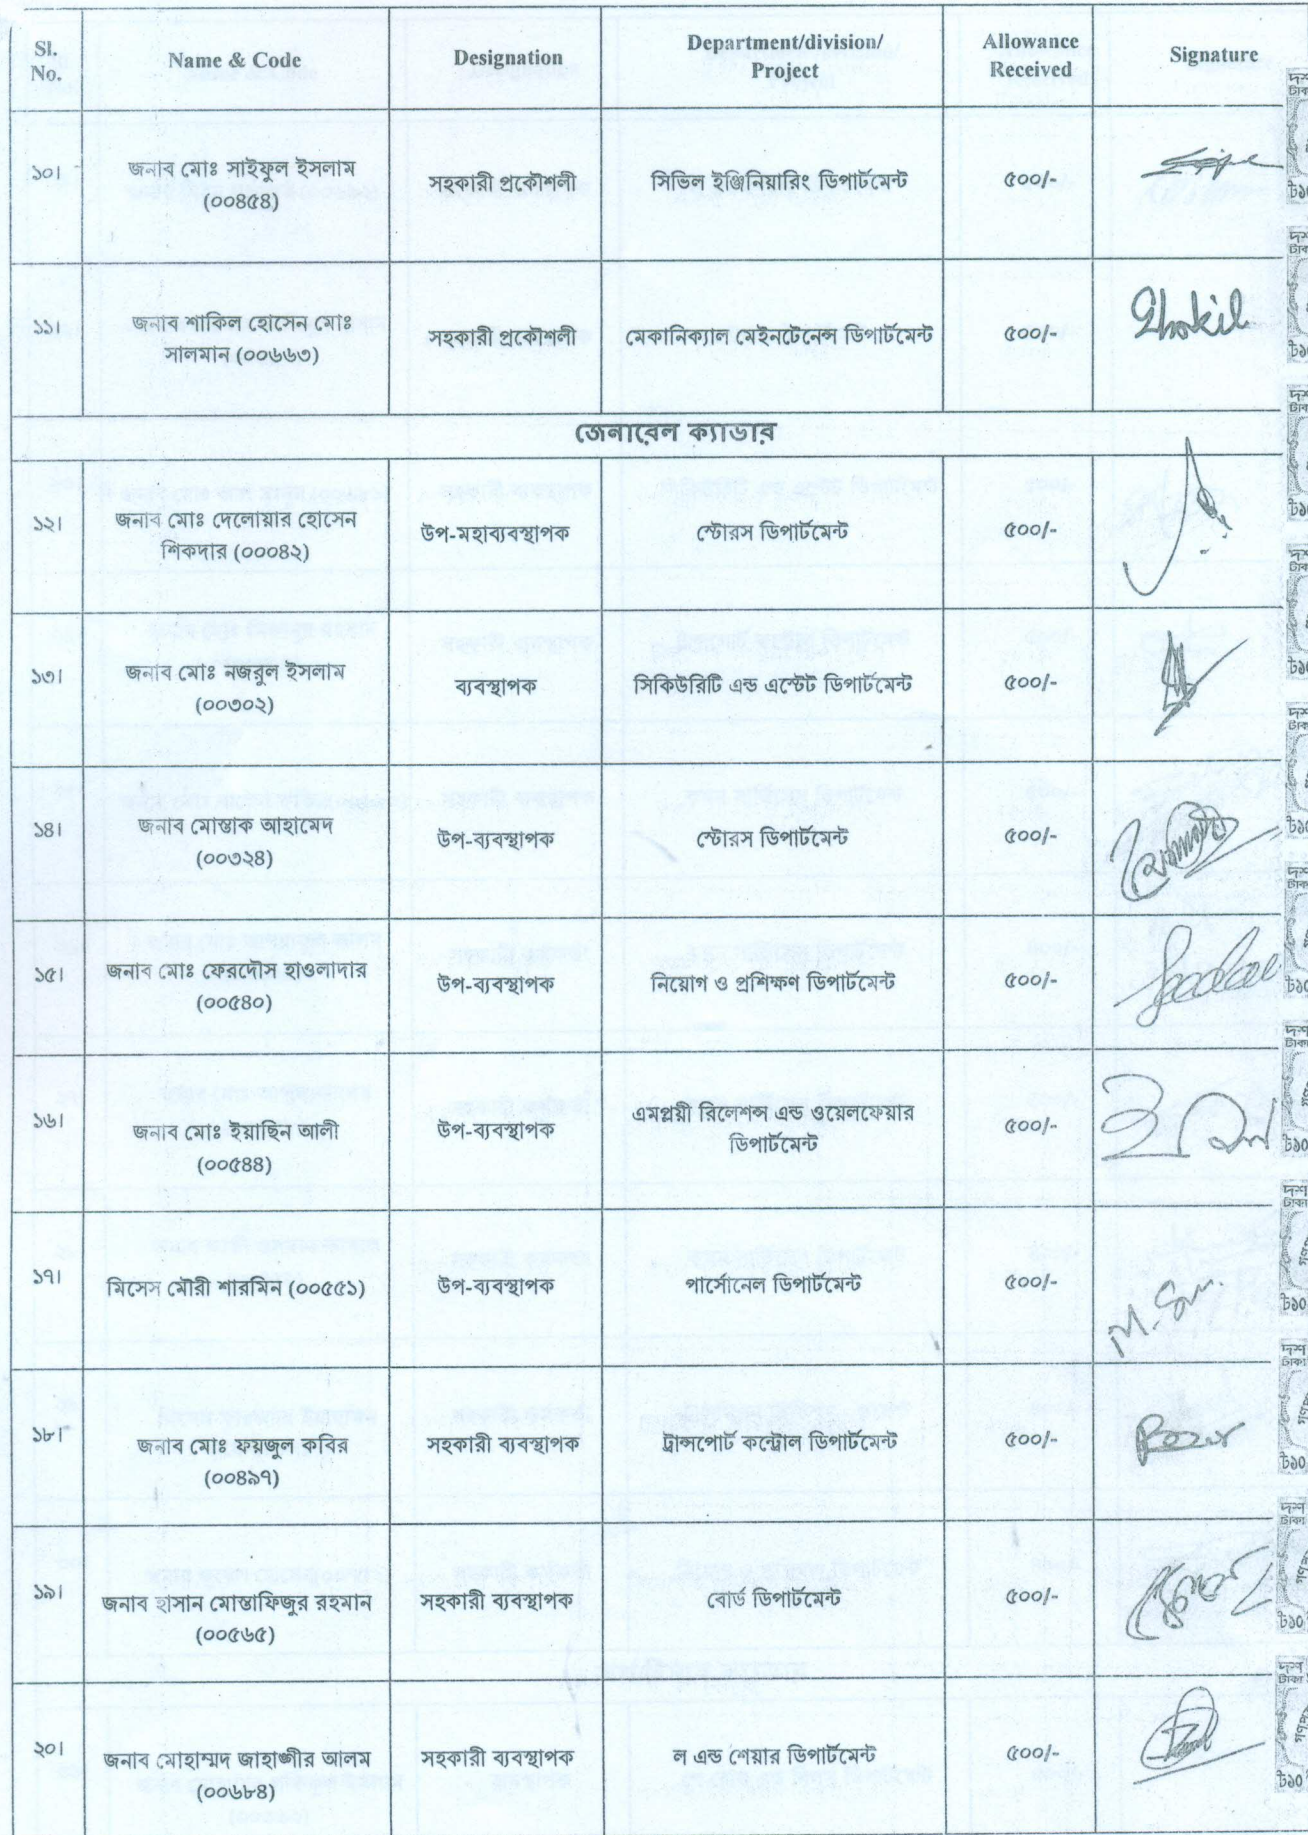 Sl. No. Name & Code Designation Department/division/ Project Allowance Received Signature
১০। জনাব মোঃ সাইফুল ইসলাম (০০৪৫৪) সহকারী প্রকৌশলী সিভিল ইঞ্জিনিয়ারিং ডিপার্টমেন্ট ৫০০/-
১১। জনাব শাকিল হোসেন মোঃ সালমান (০০৬৬৩) সহকারী প্রকৌশলী মেকানিক্যাল মেইনটেনেন্স ডিপার্টমেন্ট ৫০০/- Shakil
জেনারেল ক্যাডার
১২। জনাব মোঃ দেলোয়ার হোসেন শিকদার (০০০৪২) উপ-মহাব্যবস্থাপক স্টোরস ডিপার্টমেন্ট ৫০০/-
১৩। জনাব মোঃ নজরুল ইসলাম (০০৩০২) ব্যবস্থাপক সিকিউরিটি এন্ড এস্টেট ডিপার্টমেন্ট ৫০০/-
১৪। জনাব মোস্তাক আহামেদ (০০৩২৪) উপ-ব্যবস্থাপক স্টোরস ডিপার্টমেন্ট ৫০০/-
১৫। জনাব মোঃ ফেরদৌস হাওলাদার (০০৫৪০) উপ-ব্যবস্থাপক নিয়োগ ও প্রশিক্ষণ ডিপার্টমেন্ট ৫০০/-
১৬। জনাব মোঃ ইয়াছিন আলী (০০৫৪৪) উপ-ব্যবস্থাপক এমপ্লয়ী রিলেশন্স এন্ড ওয়েলফেয়ার ডিপার্টমেন্ট ৫০০/-
১৭। মিসেস মৌরী শারমিন (০০৫৫১) উপ-ব্যবস্থাপক পার্সোনেল ডিপার্টমেন্ট ৫০০/-
১৮। জনাব মোঃ ফয়জুল কবির (০০৪৯৭) সহকারী ব্যবস্থাপক ট্রান্সপোর্ট কন্ট্রোল ডিপার্টমেন্ট ৫০০/-
১৯। জনাব হাসান মোস্তাফিজুর রহমান (০০৫৬৫) সহকারী ব্যবস্থাপক বোর্ড ডিপার্টমেন্ট ৫০০/-
২০। জনাব মোহাম্মদ জাহাঙ্গীর আলম (০০৬৮৪) সহকারী ব্যবস্থাপক ল এন্ড শেয়ার ডিপার্টমেন্ট ৫০০/-